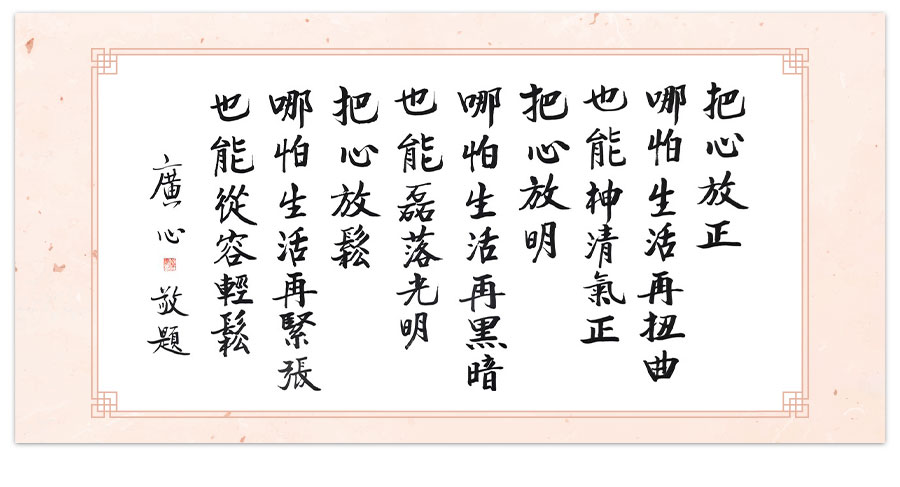 把心放正
哪怕生活再扭曲
也能神清氣正
把心放明
哪怕生活再黑暗
也能磊落光明
把心放鬆
哪怕生活再緊張
也能從容輕鬆
廣心 敬題